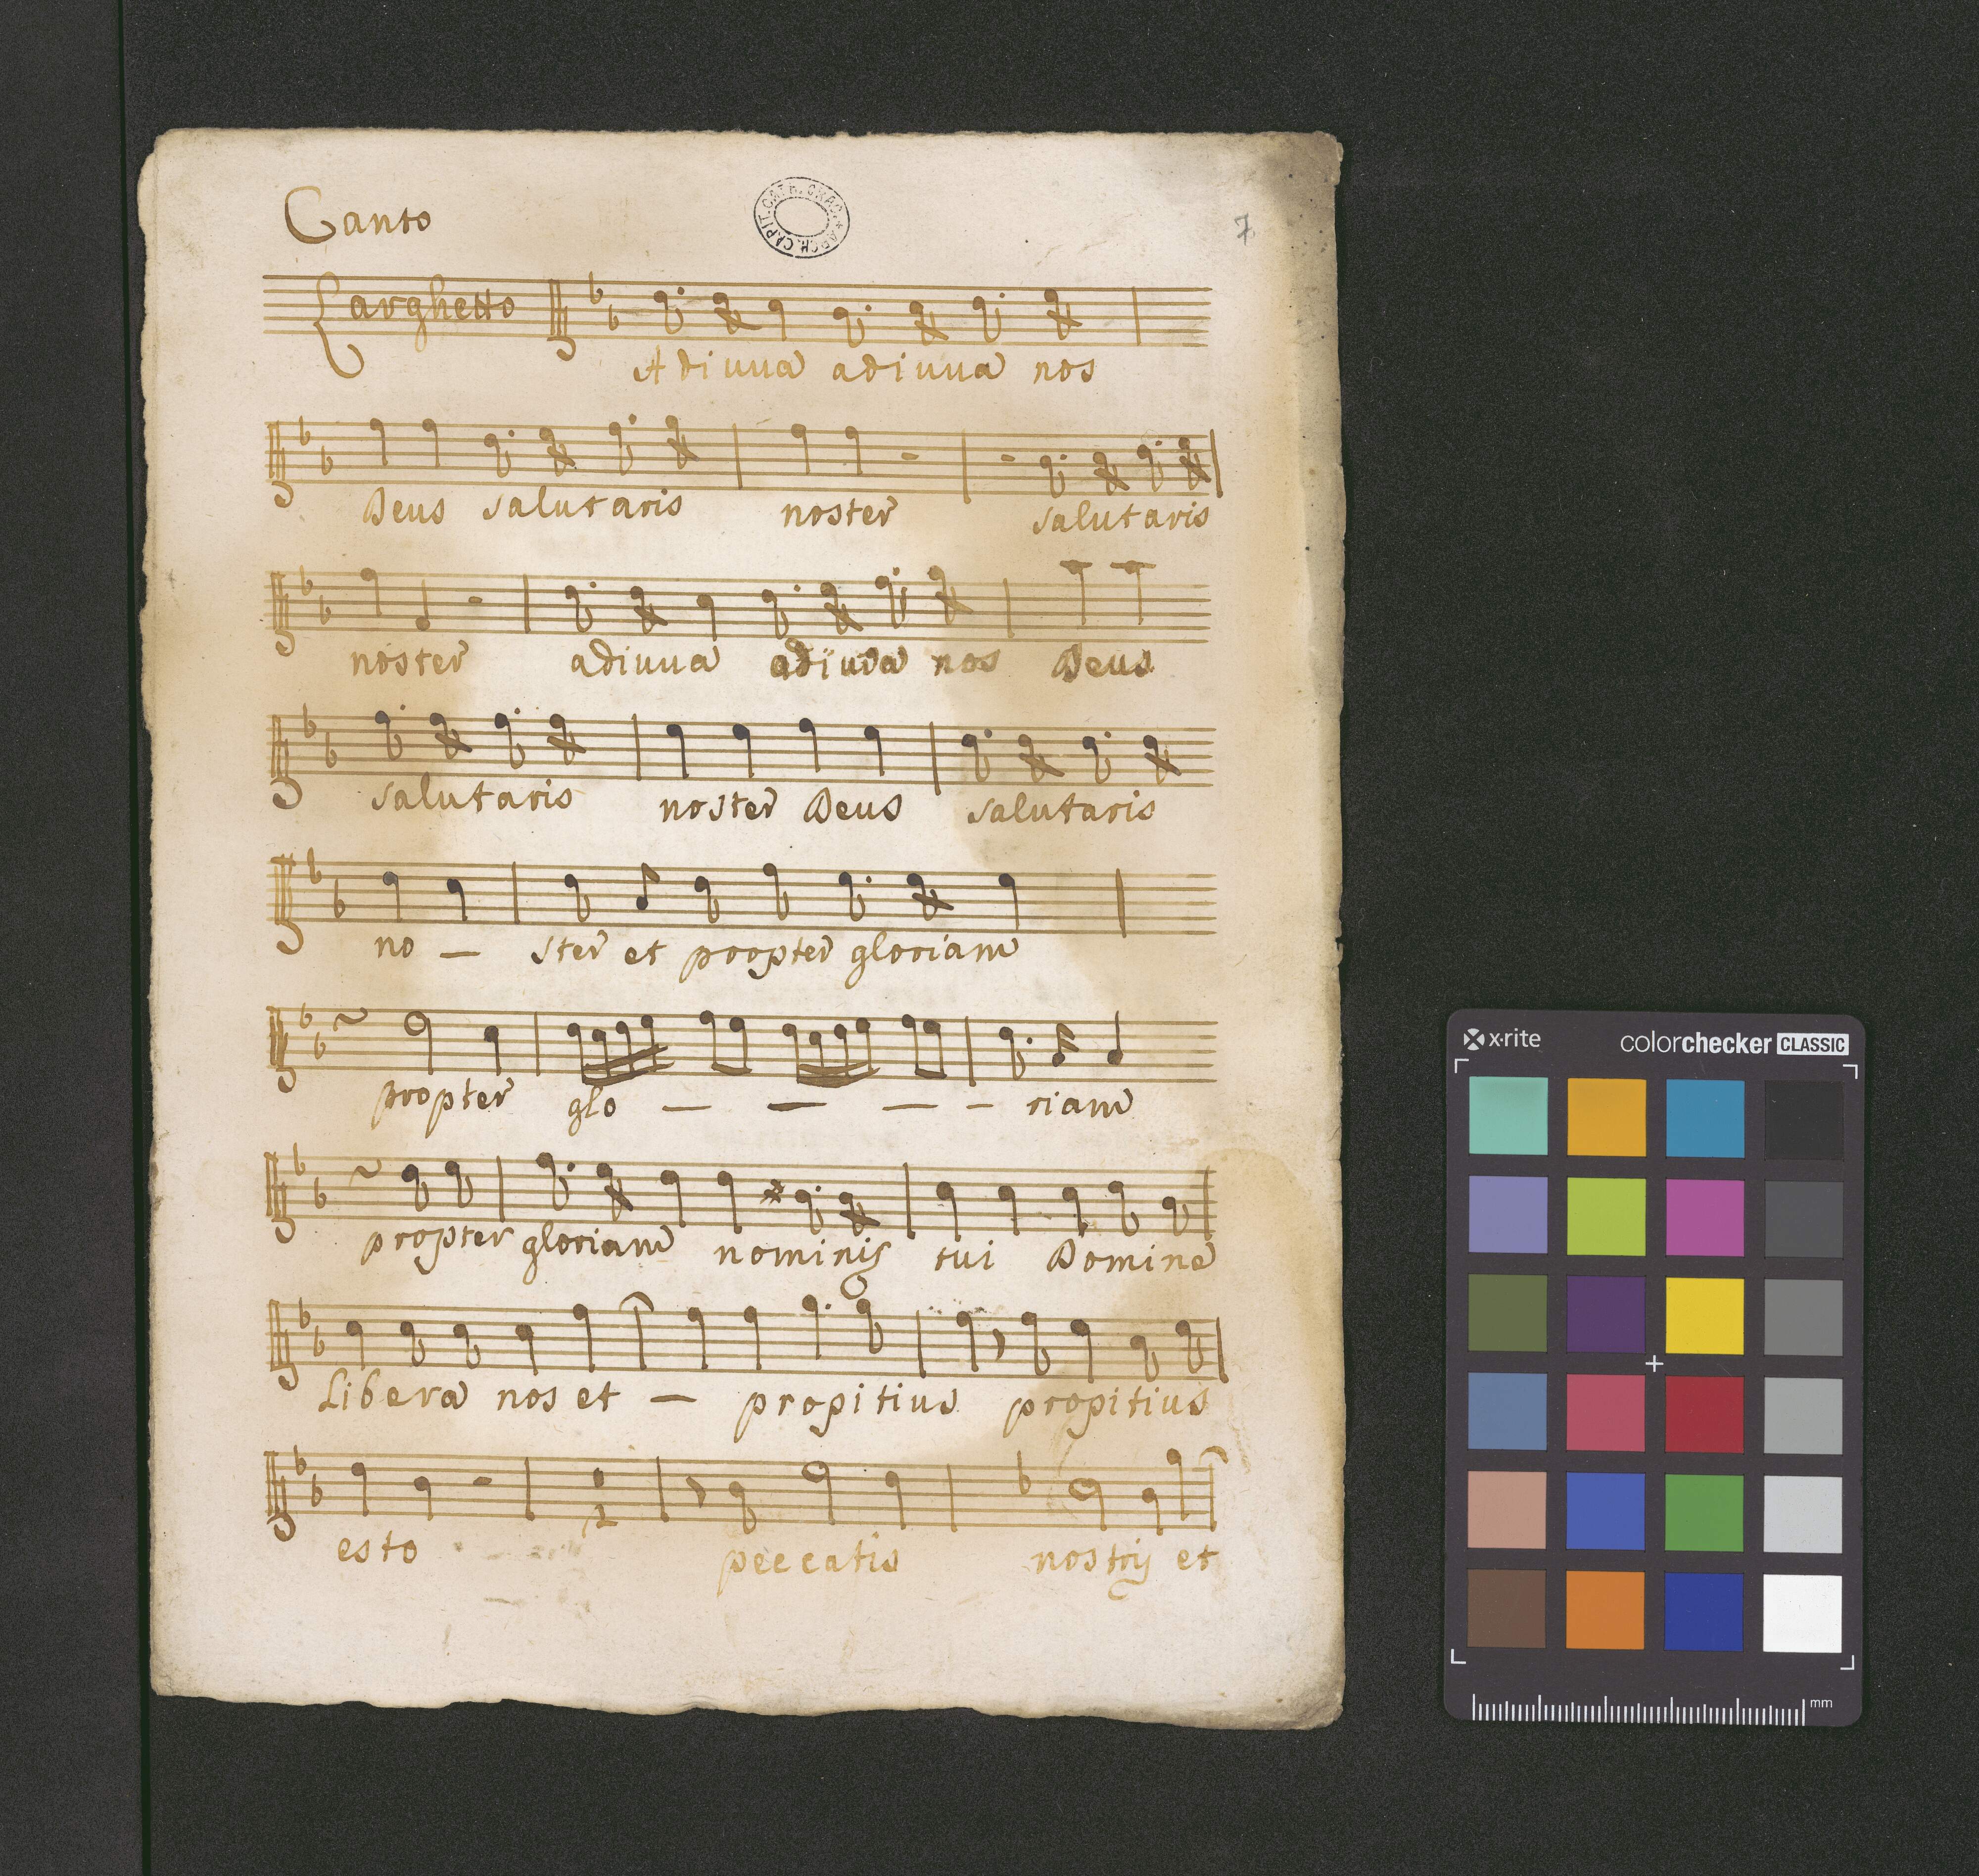 Canto
ARCH. CAPIT. CATH. CRAC.
7
Larghetto
Adiuua adiuua nos
Deus salutaris noster salutaris
noster adiuua adiuua nos Deus
salutaris noster Deus salutaris
no — ster et propter gloriam
propter glo — — — — riam
propter gloriam nominis tui Domine
Libera nos et — propitius propitius
esto peccatis nostris et
x-rite colorchecker CLASSIC
mm